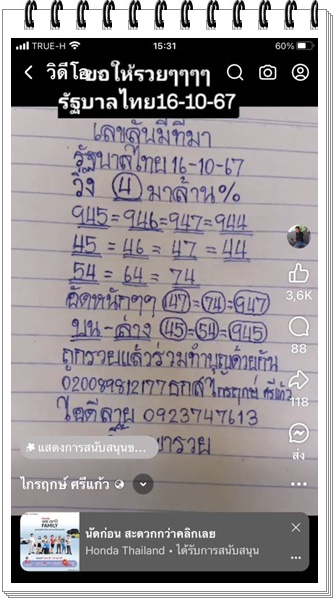 TRUE-H 15:31 60%
วิดีโอ
ขอให้รวยๆๆๆๆ
รัฐบาลไทย16-10-67
เลขลับมีที่มา
รัฐบาลไทย 16-10-67
วิ่ง 4 มาล้าน%
945=946=947=944
45=46=47=44
54=64=74
อัดหนักๆๆ 47=74=947
บน-ล่าง 45=54=945
ถูกรวยแล้วร่วมทำบุญด้วยกัน
ธกส ไกรฤกษ์ ศรีแก้ว
ไอดีลาย 0923747613
3,6K
88
118
ส่ง
แสดงการสนับสนุนข...
ไกรฤกษ์ ศรีแก้ว
นัดก่อน สะดวกกว่าคลิกเลย
Honda Thailand • ได้รับการสนับสนุน